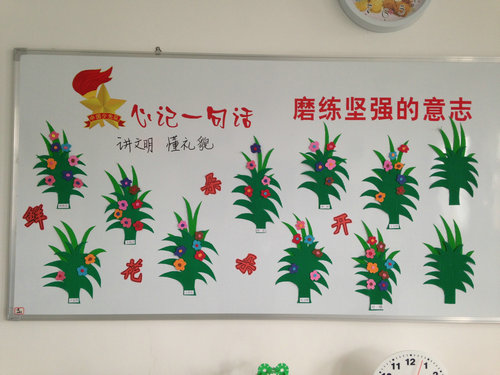 心记一句话
磨练坚强的意志
讲文明 懂礼貌
鲜花朵朵开